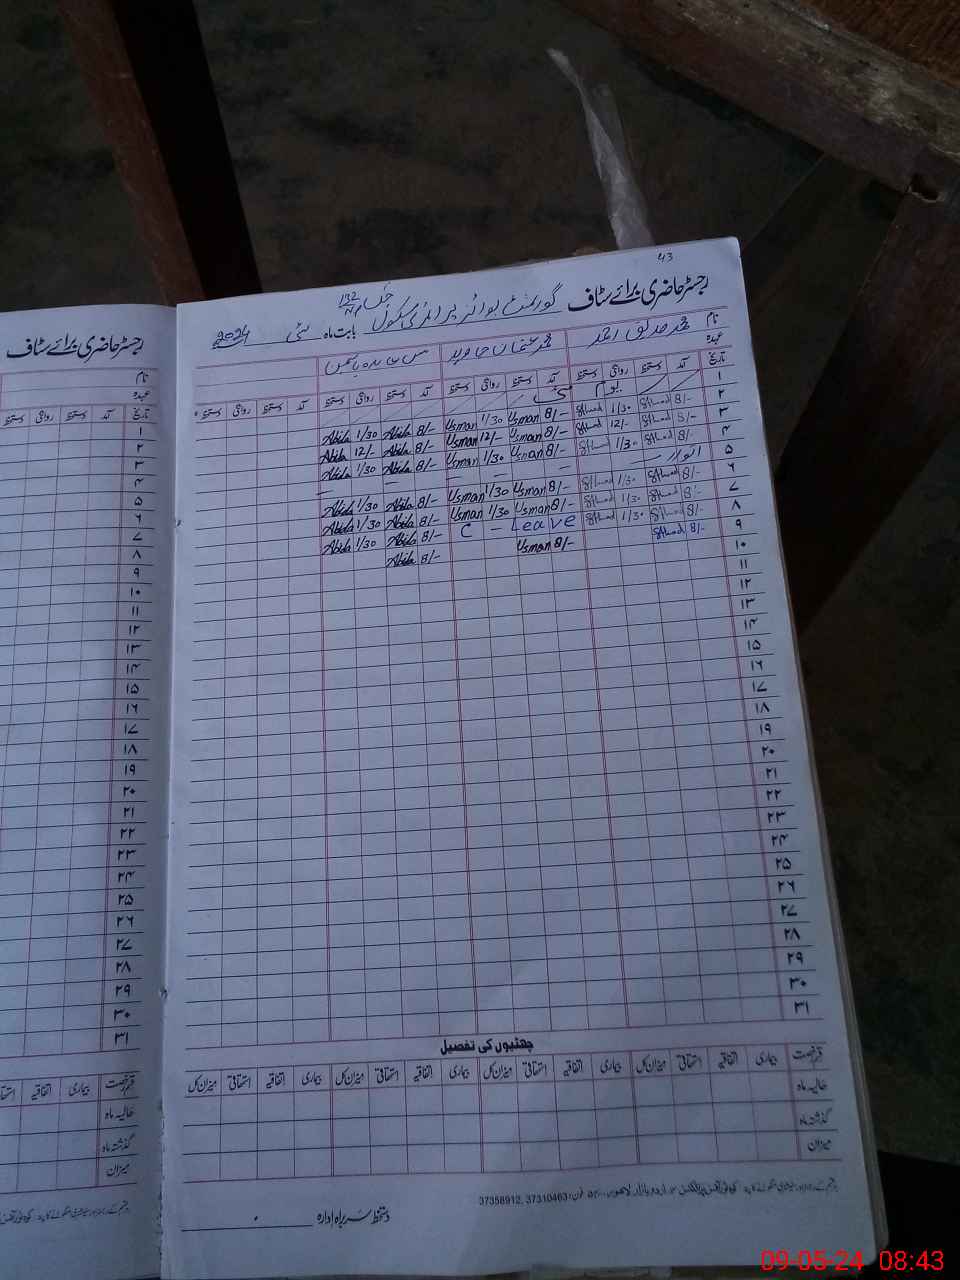 43
رجسٹر حاضری برائے سٹاف گورنمنٹ بوائز پرائمری سکول 132
بابت ماہ مئی 2024
نام محمد صدیق احمد محمد عثمان جاوید مس عابدہ یاسمین
عہدہ
تاریخ آمد دستخط روانگی دستخط آمد دستخط روانگی دستخط آمد دستخط روانگی دستخط آمد دستخط روانگی دستخط
۱ یوم
۲ 8/- 1/30 8/- Usman 1/30 Usman 8/- Abida 1/30 Abida
۳ 8/- 12/- 8/- Usman 12/- Usman 8/- Abida 12/- Abida
۴ 8/- 1/30 8/- Usman 1/30 Usman 8/- Abida 1/30 Abida
۵ اتوار — — — —
۶ 8/- 1/30 8/- Usman 1/30 Usman 8/- Abida 1/30 Abida
۷ 8/- 1/30 8/- Usman 1/30 Usman 8/- Abida 1/30 Abida
۸ 8/- 1/30 C - Leave 8/- Abida 1/30 Abida
۹ 8/- 8/- Usman 8/- Abida
۱۰
۱۱
۱۲
۱۳
۱۴
۱۵
۱۶
۱۷
۱۸
۱۹
۲۰
۲۱
۲۲
۲۳
۲۴
۲۵
۲۶
۲۷
۲۸
۲۹
۳۰
۳۱
چھٹیوں کی تفصیل
قسم رخصت بیماری اتفاقیہ استحقاقی میزان کل بیماری اتفاقیہ استحقاقی میزان کل بیماری اتفاقیہ استحقاقی میزان کل بیماری اتفاقیہ استحقاقی میزان کل
حالیہ ماہ
گذشتہ ماہ
میزان
اردو بازار لاہور فون: 37310463, 37358912
دستخط سربراہ ادارہ
رجسٹر حاضری برائے سٹاف
نام
عہدہ
تاریخ آمد دستخط روانگی دستخط
۱
۲
۳
۴
۵
۶
۷
۸
۹
۱۰
۱۱
۱۲
۱۳
۱۴
۱۵
۱۶
۱۷
۱۸
۱۹
۲۰
۲۱
۲۲
۲۳
۲۴
۲۵
۲۶
۲۷
۲۸
۲۹
۳۰
۳۱
قسم رخصت بیماری اتفاقیہ
حالیہ ماہ
گذشتہ ماہ
میزان
09-05-24 08:43